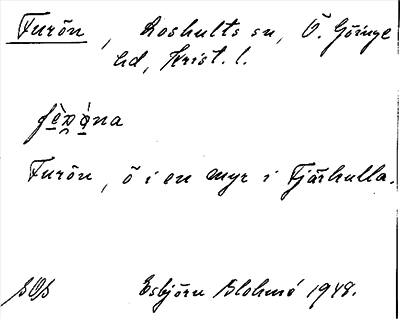 Furön, Loshults sn, Ö. Göinge
hd, Krist. l.
Furön, ö i en myr i Fjärhulla.
SOS Esbjörn Blohmé 1948.